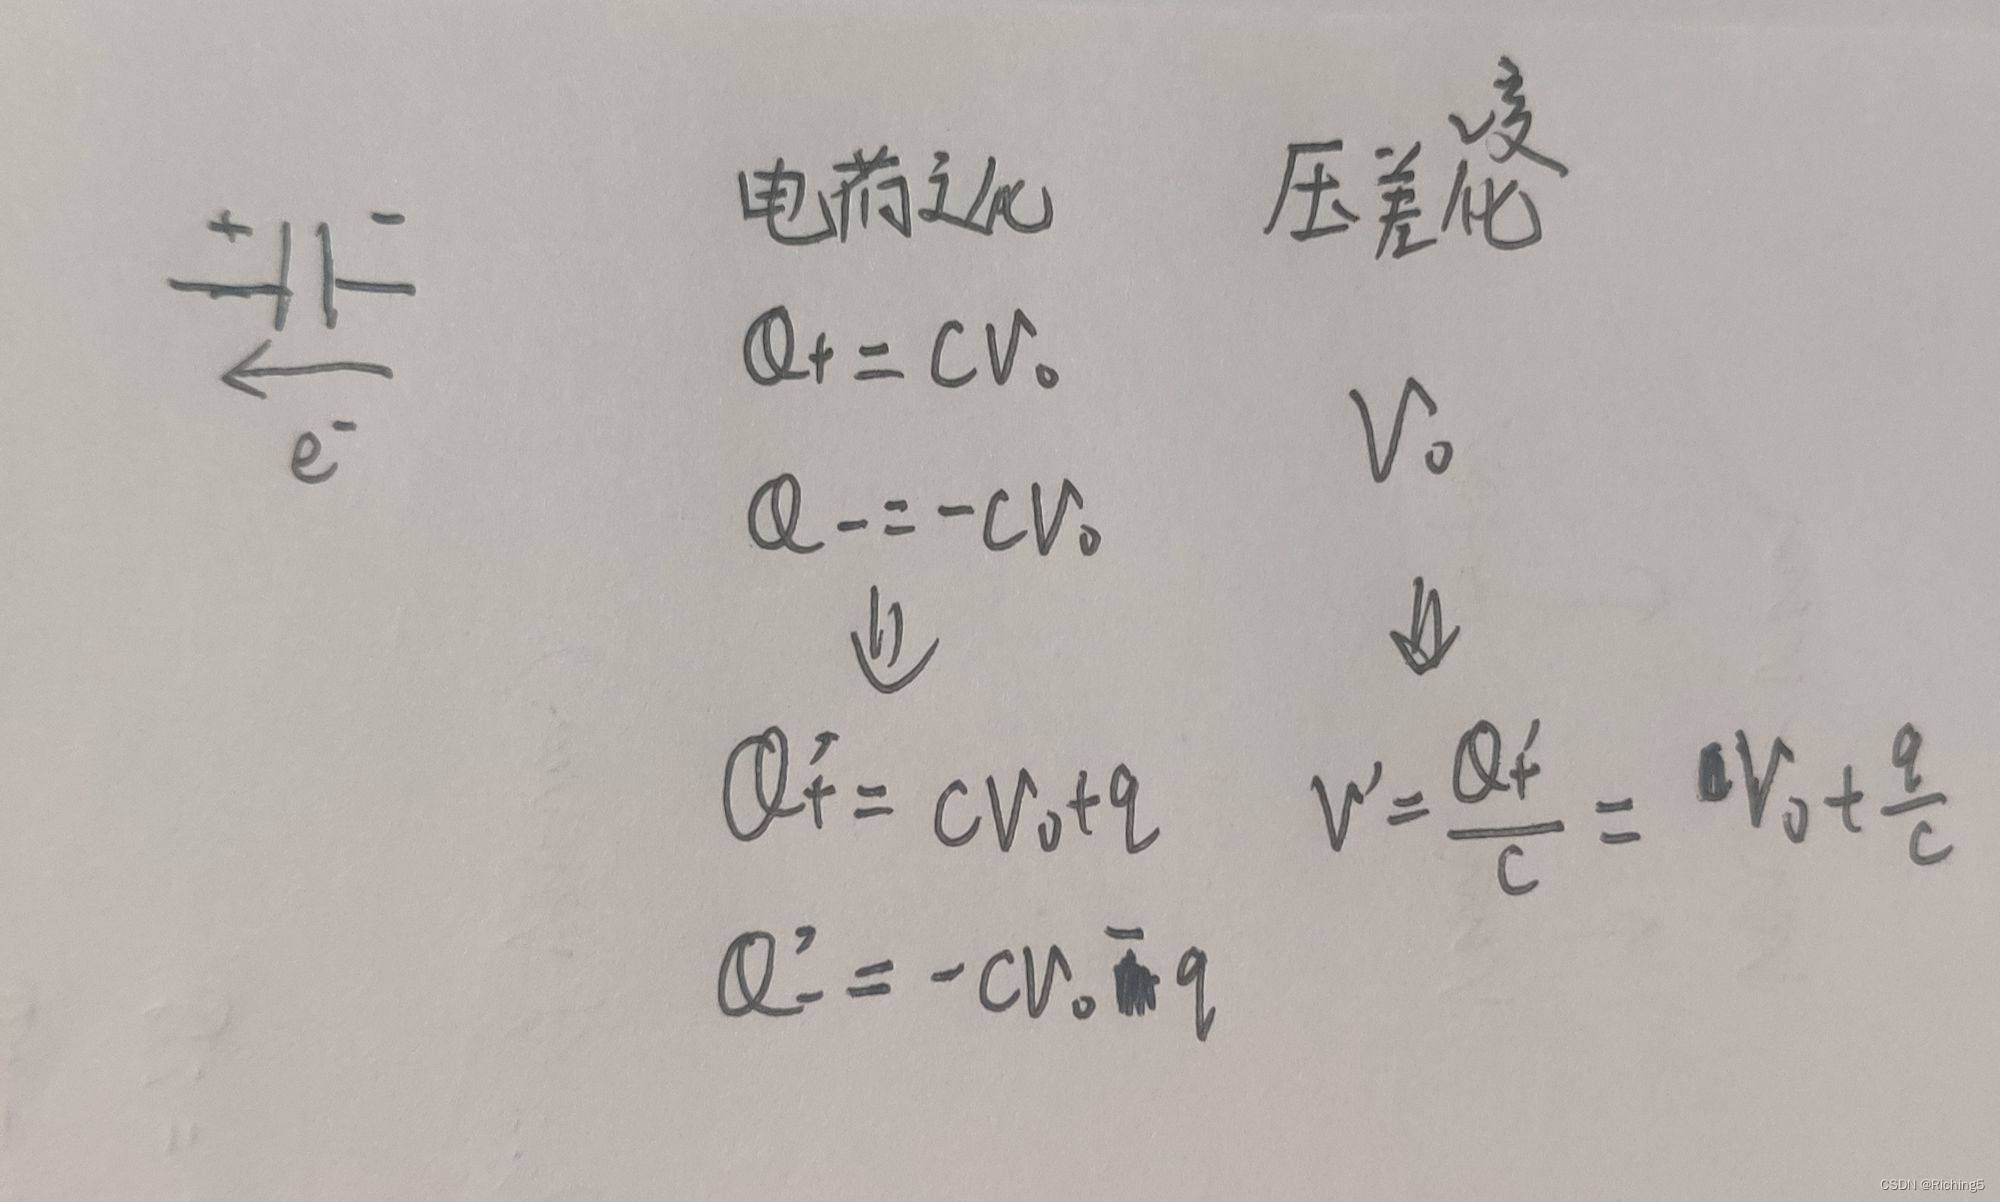 + -
e⁻
电荷变化
Q+ = CV₀
Q- = -CV₀
Q'+ = CV₀+q
Q'- = -CV₀-q
压差变化
V₀
V' = Q+'/C = V₀+q/C
CSDN @Riching5